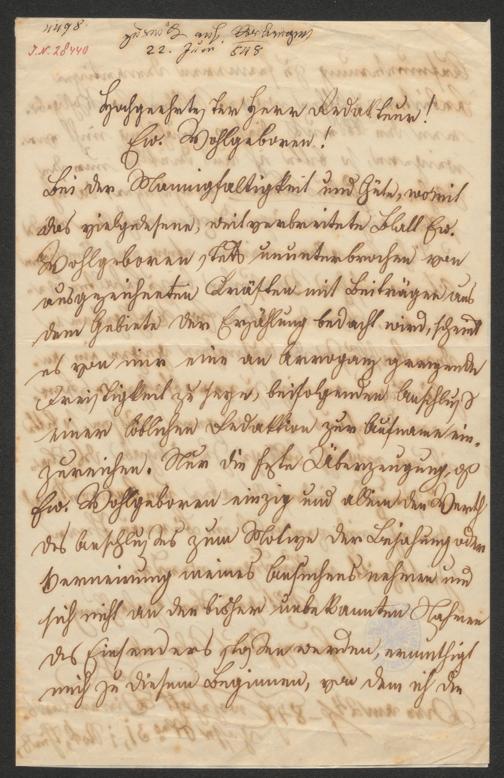 4498.
J.N. 28440
zurück auf Verlangen
22. Juni 848
Hochgeehrtester Herr Redakteur!
Ew. Wohlgeboren!
Bei der Mannigfaltigkeit und Güte, womit
das vielgelesene, weitverbreitete Blatt Ew.
Wohlgeboren stets ununterbrochen von
ausgezeichneten Kräften mit Beiträgen aus
dem Gebiete der Erzählung bedacht wird, scheint
es von mir eine an Arroganz grenzende
Dreistigkeit zu seyn, beifolgenden Anschluß
einer löblichen Redaktion zur Aufname ein-
zureichen. Nur die feste Überzeugung, daß
Ew. Wohlgeboren einzig und allein den Werth
des Anschlußes zum Motive der Bejahung oder
Verneinung meines Ansuchens nehmen und
sich nicht an den bisher unbekannten Nahmen
des Einsenders stoßen werden, ermuthigt
mich zu diesem Beginnen, von dem ich die